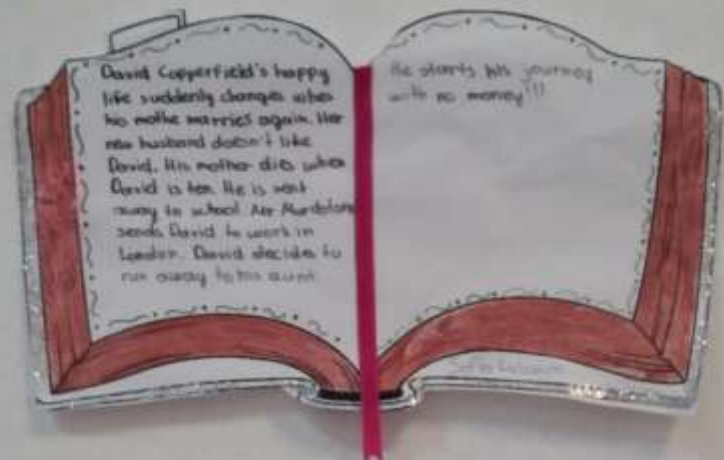 David Copperfield's happy
life suddenly changes when
his mothe marries again. Her
new husband doesn't like
David. His mother dies when
David is ten. He is sent
away to school. Mr Murdstone
sends David to work in
London. David decides to
run away to his aunt
He starts his journey
with no money!!!